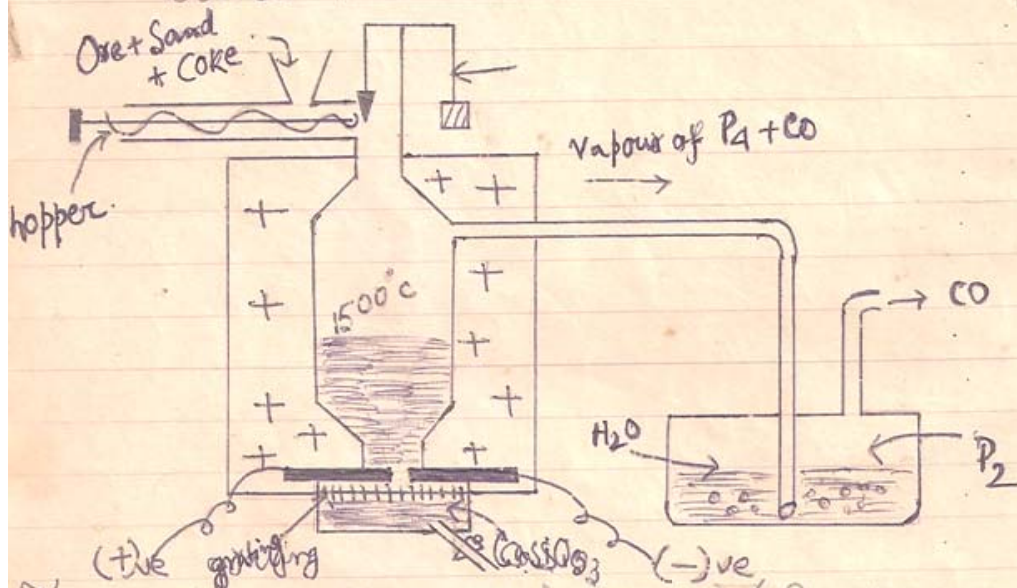 Ore + Sand
+ Coke
hopper.
vapour of P4 + CO
1500°C
CO
H2O
P2
(+)ve
CaSiO3
(-)ve